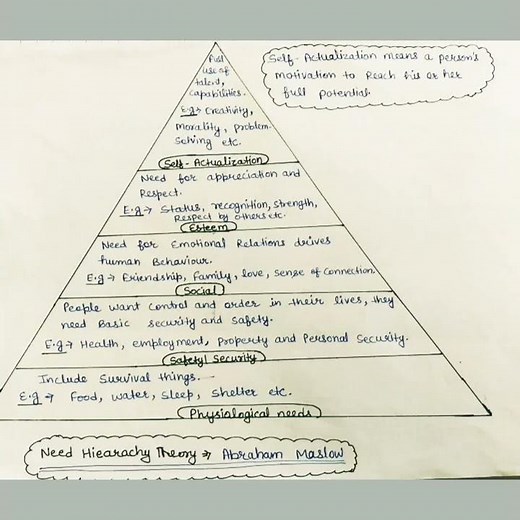 Full
use of
talent,
capabilities.
E.g → Creativity,
Morality, problem-
Solving etc.
Self-Actualization
Self-Actualization means a person's
motivation to Reach his or her
full Potential.
Need for appreciation and
Respect.
E.g → Status, recognition, strength,
Respect by others etc.
Esteem
Need for Emotional Relations drives
human Behaviour.
E.g → Friendship, Family, love, sense of connection.
Social
People want control and order in their lives, they
need Basic security and safety.
E.g → Health, employment, property and Personal Security.
Safety/Security
Include Survival things.
E.g → Food, water, Sleep, Shelter etc.
Physiological needs
Need Hiearachy Theory → Abraham Maslow